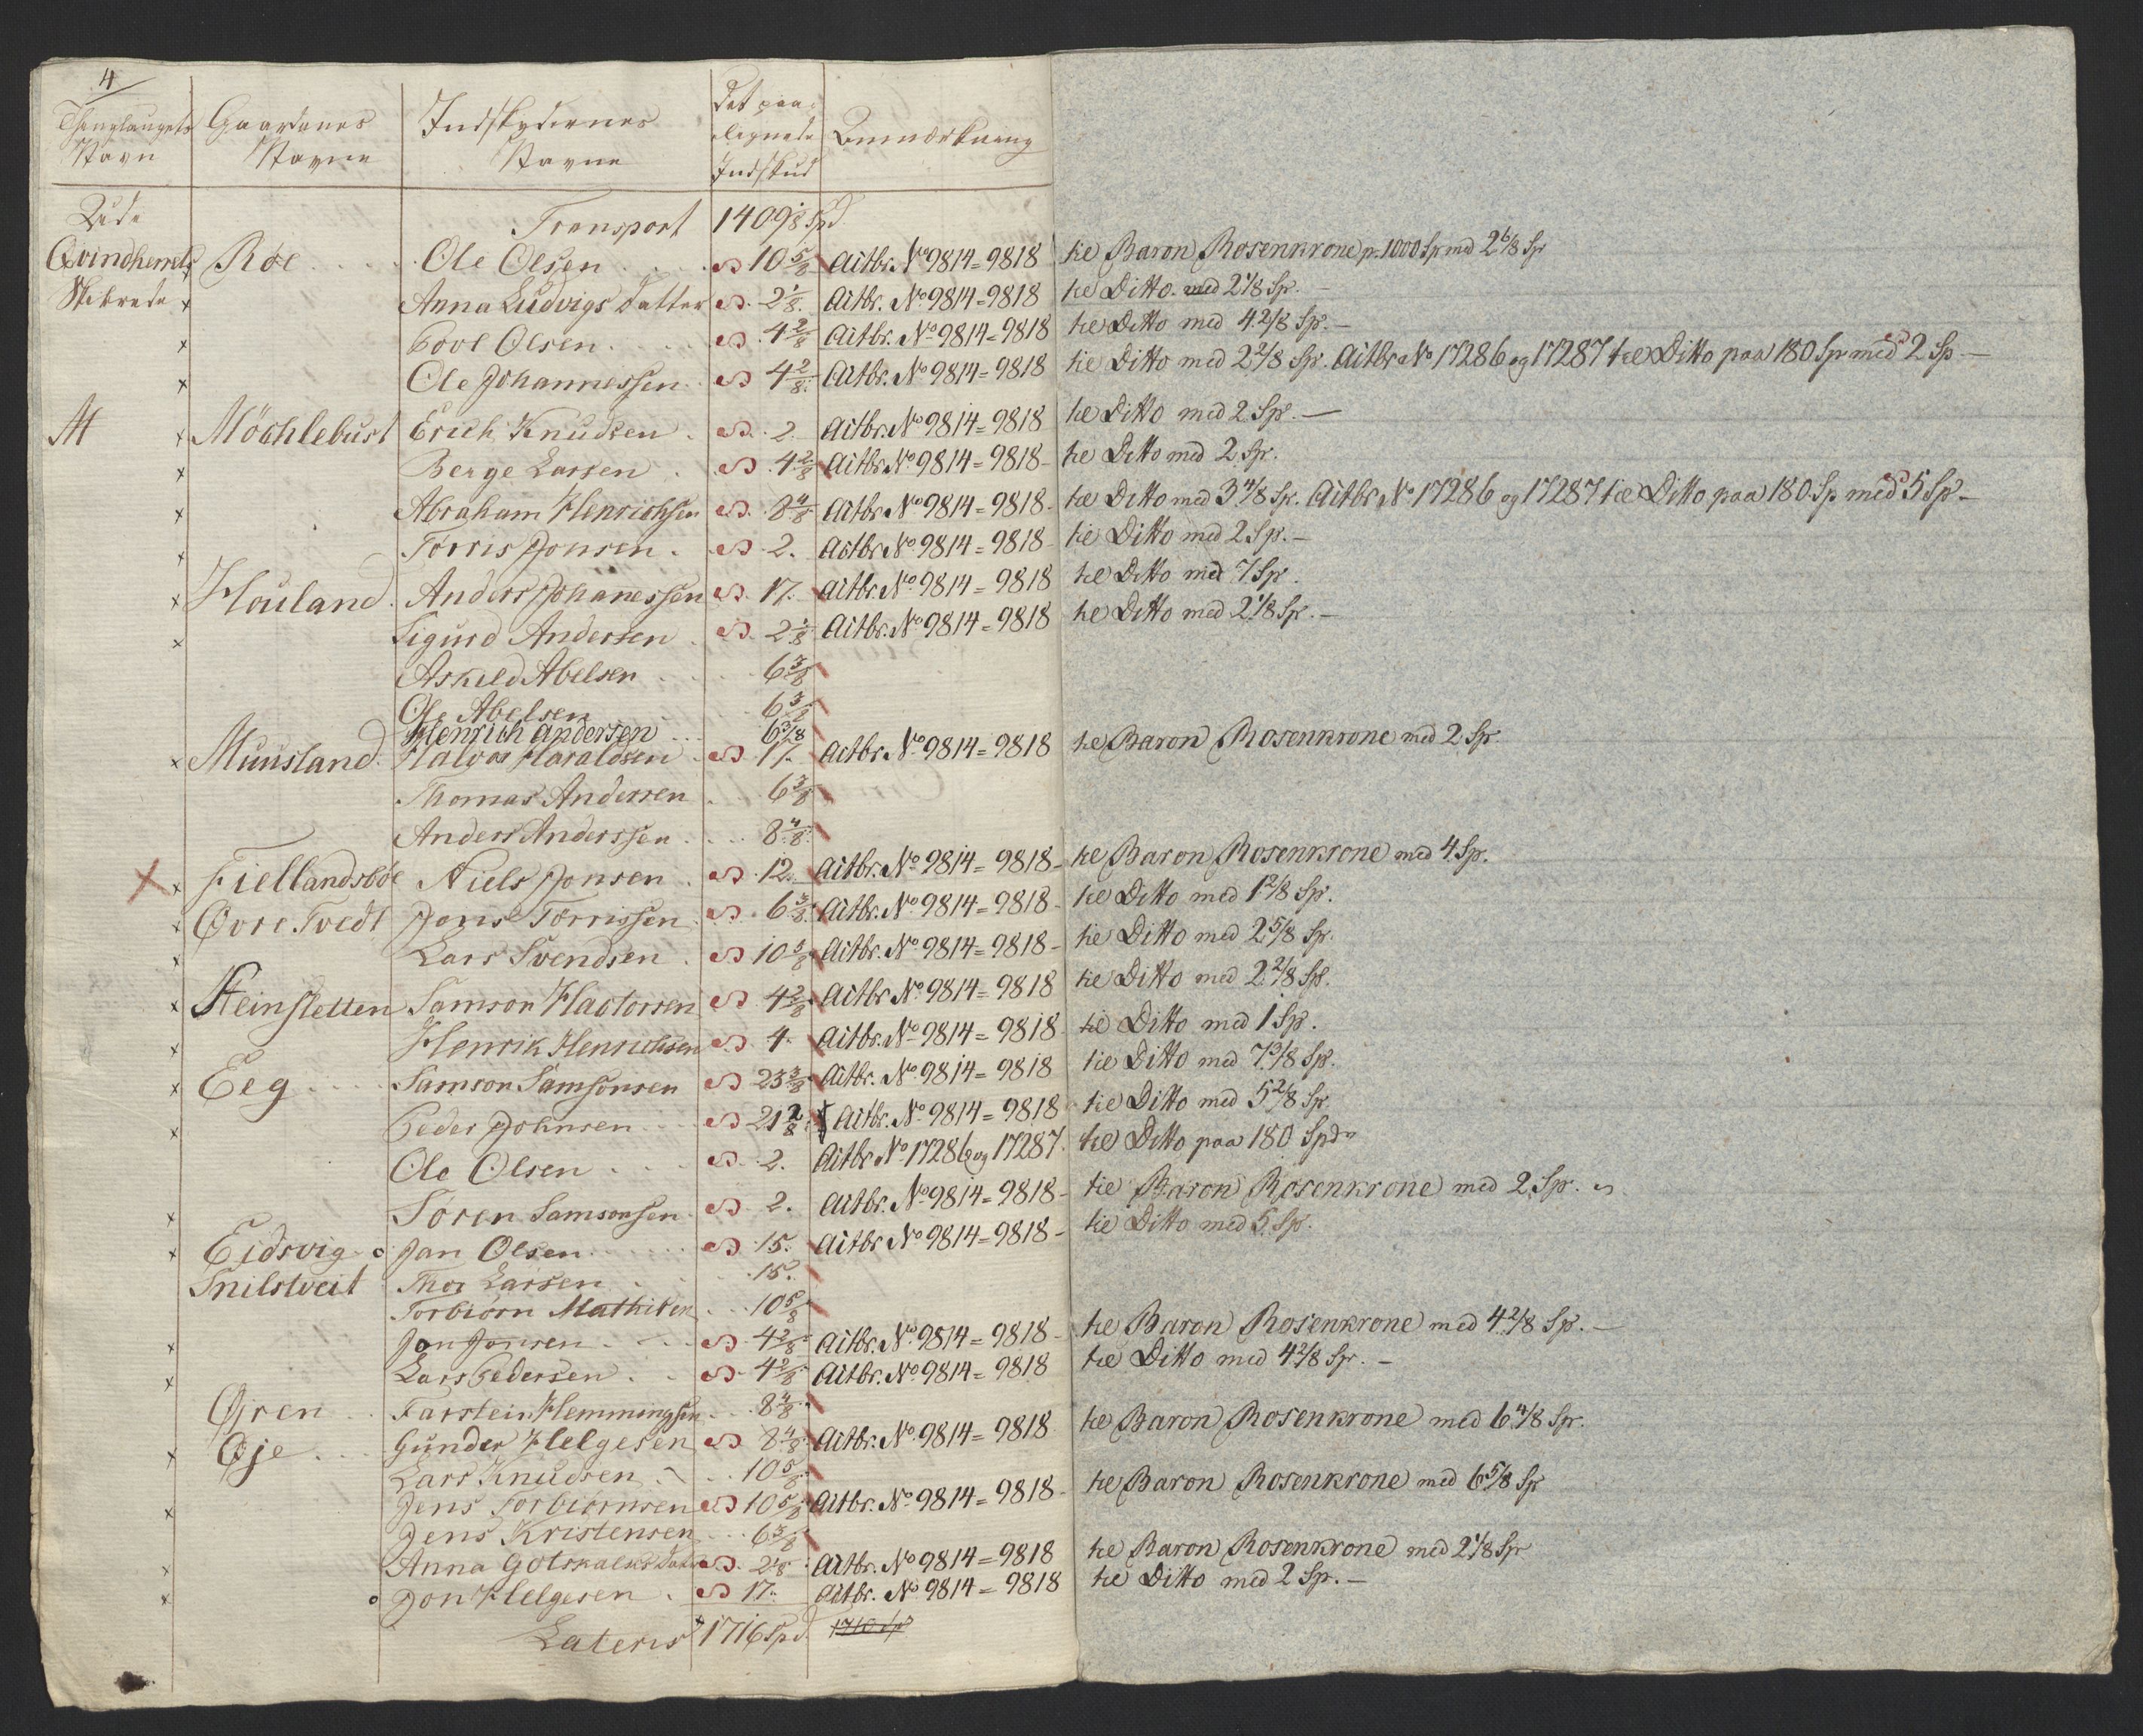 4
Thinglaugets Navn | Gaardenes Navne | Indskydernes Navne | Det paalignede Indskud | Anmærkning
Transport 1409 1/8 Spd
Qvindherrets Skibrede
x Røe Ole Olsen 10 5/8 Actbr. No 9814=9818 til Baron Rosenkrone p. 1000 Sp med 2 6/8 Sp
x Anna Ludvigs Datter 2 1/8 Actbr. No 9814=9818 til Ditto med 2 1/8 Sp.
x Povl Olsen 4 2/8 Actbr. No 9814=9818 til Ditto med 4 2/8 Sp.
x Ole Johannessen 4 2/8 Actbr. No 9814=9818 til Ditto med 2 2/8 Sp. Actbr No 17286 og 17287 til Ditto paa 180 Sp med 2 Sp
x Møchlebust Erich Knudsen 2. Actbr. No 9814=9818 til Ditto med 2 Sp.
x Berge Larsen 4 2/8 Actbr No 9814=9818 til Ditto med 2 Sp.
x Abraham Henrichsen 8 4/8 Actbr No 9814=9818 til Ditto med 3 4/8 Sp. Actbr No 17286 og 17287 til Ditto paa 180 Sp med 5 Sp
x Tørris Jonsen 2. Actbr No 9814=9818 til Ditto med 2 Sp.
x Houland Anders Johanessen 17. Actbr. No 9814=9818 til Ditto med 7 Sp.
x Sigurd Andersen 2 1/8 Actbr. No 9814=9818 til Ditto med 2 1/8 Sp.
Askild Abelsen 6 3/8
Ole Abelsen 6 3/8
Henrich Andersen 6 3/8
x Muusland Halvor Haraldsen 17. Actbr. No 9814=9818 til Baron Rosenkrone med 2 Sp.
Thomas Andersen 6 3/8
Anders Anderssen 8 4/8
x x Fiellandsbøe Niels Jonsen 12. Actbr. No 9814=9818 til Baron Rosenkrone med 4 Sp.
x Øvre Tvedt Jons Tørrissen 6 3/8 Actbr. No 9814=9818 til Ditto med 1 2/8 Sp.
x Lars Svendsen 10 5/8 Actbr. No 9814=9818 til Ditto med 2 5/8 Sp.
x Steinsletten Samson Hactorsen 4 2/8 Actbr No 9814=9818 til Ditto med 2 2/8 Sp.
x Henrik Henrichsen 4. Actbr. No 9814=9818 til Ditto med 1 Sp.
x Eeg Samson Samsonsen 23 3/8 Actbr. No 9814=9818 til Ditto med 7 3/8 Sp.
x Peder Johnsen 21 2/8 Actbr. No 9814=9818 til Ditto med 5 2/8 Sp
Ole Olsen 2. Actbr No 17286 og 17287 til Ditto paa 180 Spd
x Søren Samsonsen 2. Actbr. No 9814=9818 til Baron Rosenkrone med 2 Sp.
x Eidsvig Jan Olsen 15. Actbr No 9814=9818 til Ditto med 5 Sp.
Snilstveit Thor Larsen 15.
Torbiørn Mathisen 10 5/8
x Jon Jonsen 4 2/8 Actbr. No 9814=9818 til Baron Rosenkrone med 4 2/8 Sp.
x Lars Pedersen 4 2/8 Actbr. No 9814=9818 til Ditto med 4 2/8 Sp.
Øjren Farstein Hemmingsen 8 4/8
x Øje Gunder Helgesen 8 4/8 Actbr. No 9814=9818 til Baron Rosenkrone med 6 4/8 Sp.
Lars Knudsen 10 5/8
x Jens Torbiørnsen 10 5/8 Actbr. No 9814=9818 til Baron Rosenkrone med 6 5/8 Sp
Jens Kristensen 6 3/8
x Anna Gotskalks Datter 2 1/8 Actbr. No 9814=9818 til Baron Rosenkrone med 2 1/8 Sp
x Jon Helgesen 17. Actbr. No 9814=9818 til Ditto med 2 Sp.
Lateris 1716 Spd.